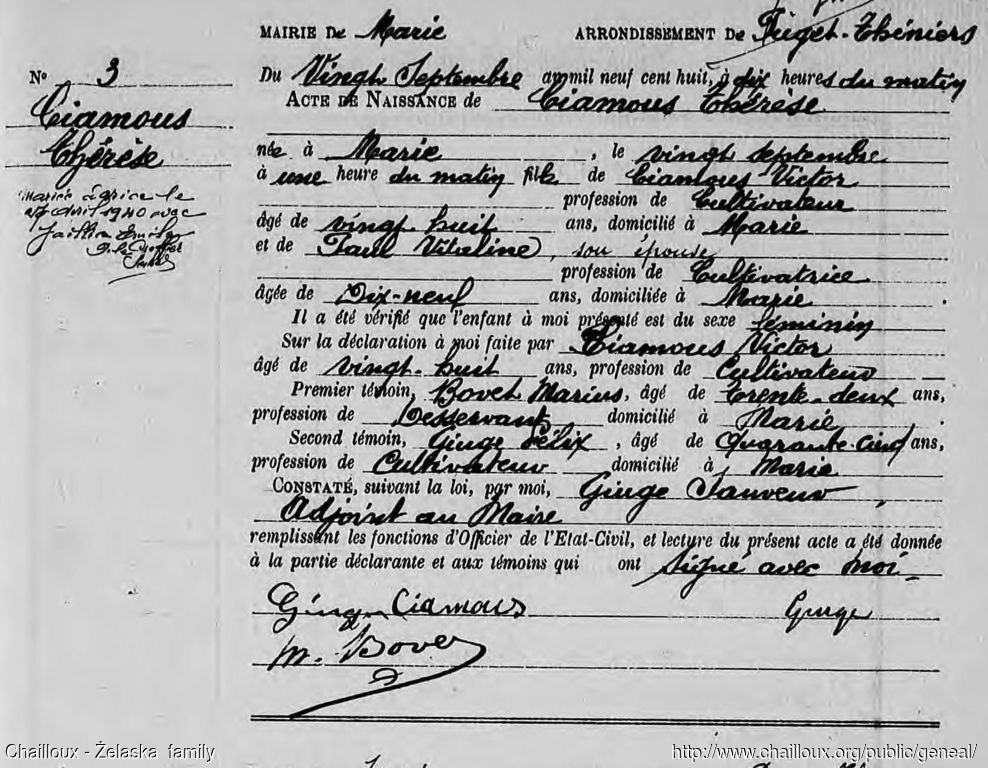 MAIRIE De Marie ARRONDISSEMENT De Puget-Théniers
N° 3
Ciamous
Thérèse
Mariée à le
avril 1940 avec
Du Vingt Septembre an mil neuf cent huit, à dix heures du matin
ACTE DE NAISSANCE de Ciamous Thérèse
née à Marie, le vingt septembre
à une heure du matin fille de Ciamous Victor
profession de Cultivateur
âgé de vingt-huit ans, domicilié à Marie
et de Paul Vitaline, son épouse
profession de Cultivatrice
âgée de Dix-neuf ans, domiciliée à Marie.
Il a été vérifié que l'enfant à moi présenté est du sexe féminin
Sur la déclaration à moi faite par Ciamous Victor
âgé de vingt-huit ans, profession de Cultivateur
Premier témoin, Bovet Marius, âgé de trente-deux ans,
profession de Desservant domicilié à Marie.
Second témoin, Giuge Félix, âgé de quarante-cinq ans,
profession de Cultivateur domicilié à Marie
CONSTATÉ, suivant la loi, par moi, Giuge Sauveur,
Adjoint au Maire
remplissant les fonctions d'Officier de l'Etat-Civil, et lecture du présent acte a été donnée
à la partie déclarante et aux témoins qui ont signé avec moi-
Giuge Ciamous Giuge
M. Bovet
Chailloux - Želaska family http://www.chailloux.org/public/geneal/